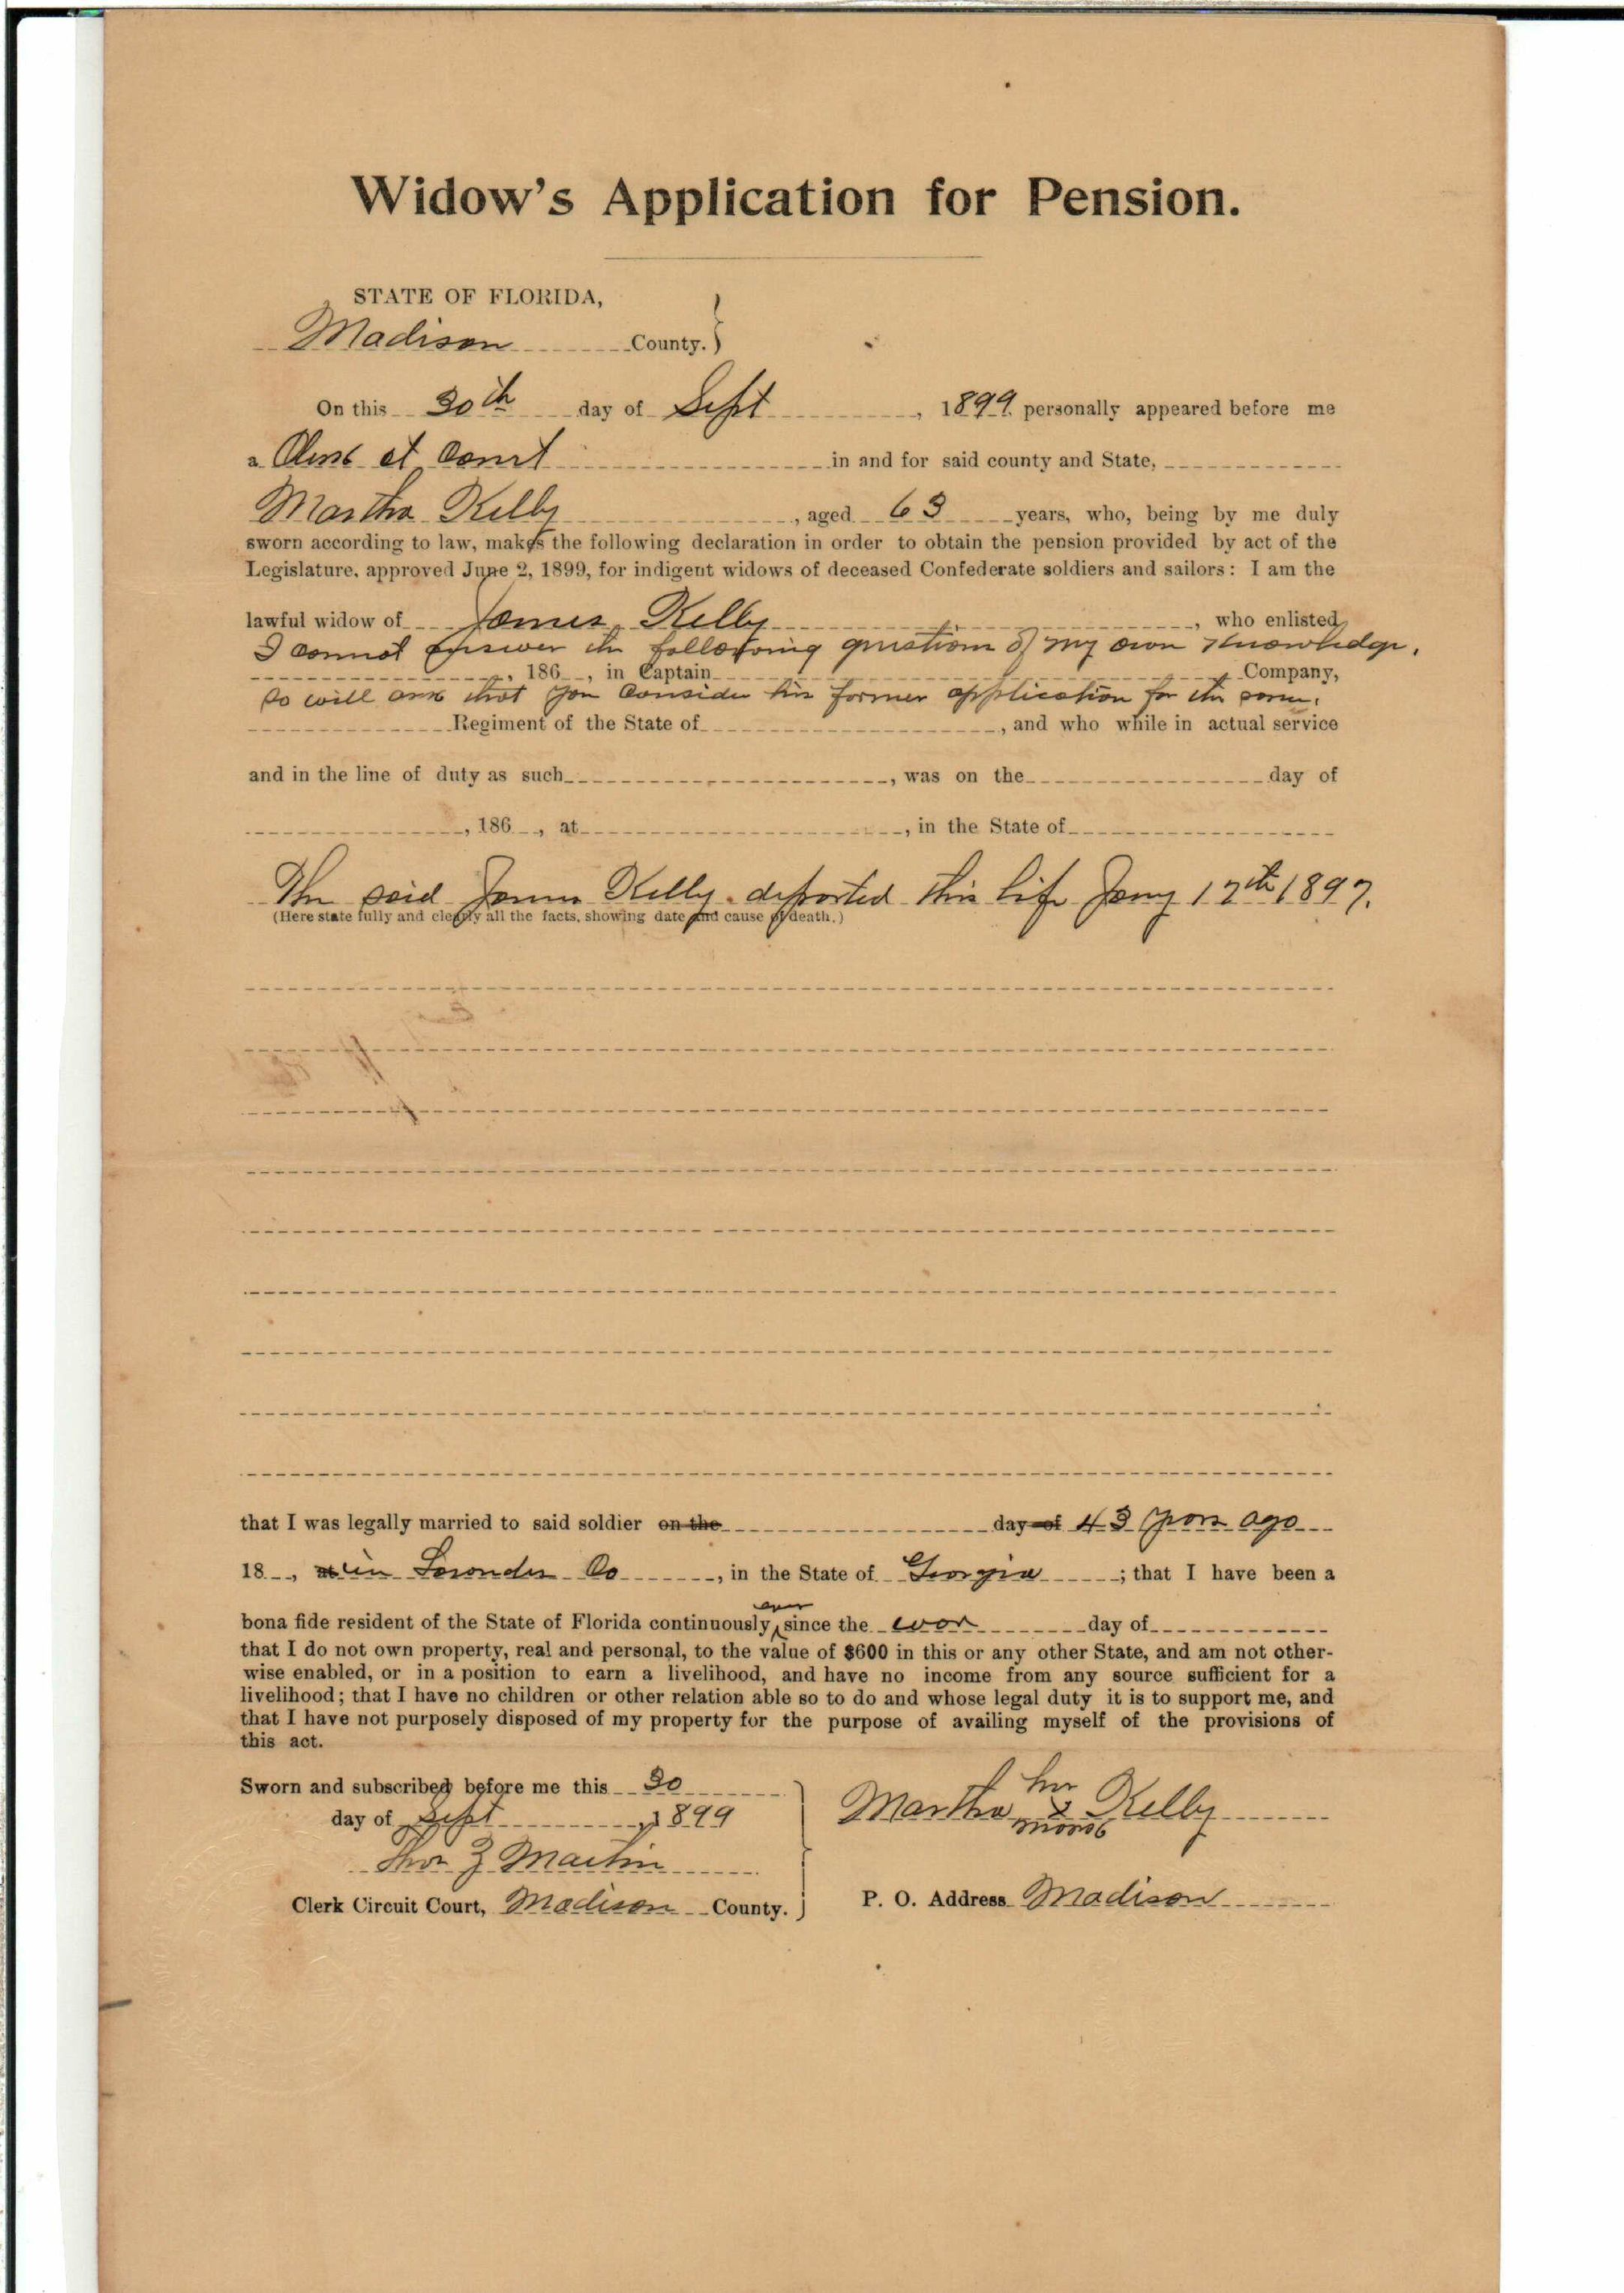 Widow's Application for Pension.
STATE OF FLORIDA,
Madison County.
On this 30th day of Sept, 1899 personally appeared before me
a Clerk of Court in and for said county and State,
Martha Kelly, aged 63 years, who, being by me duly
sworn according to law, makes the following declaration in order to obtain the pension provided by act of the
Legislature, approved June 2, 1899, for indigent widows of deceased Confederate soldiers and sailors: I am the
lawful widow of James Kelly, who enlisted
I cannot answer the following questions of my own knowledge,
, 186 , in Captain Company,
so will ask that you consider his former application for the same.
Regiment of the State of , and who while in actual service
and in the line of duty as such , was on the day of
, 186 , at , in the State of
The said James Kelly departed this life Jany 17th 1897.
(Here state fully and clearly all the facts, showing date and cause of death.)
that I was legally married to said soldier on the day of 43 years ago
18 , at in Lowndes Co , in the State of Georgia ; that I have been a
ever
bona fide resident of the State of Florida continuously since the war day of
that I do not own property, real and personal, to the value of $600 in this or any other State, and am not other-
wise enabled, or in a position to earn a livelihood, and have no income from any source sufficient for a
livelihood; that I have no children or other relation able so to do and whose legal duty it is to support me, and
that I have not purposely disposed of my property for the purpose of availing myself of the provisions of
this act.
Sworn and subscribed before me this 30
day of Sept, 1899
Thos Z Martin
Clerk Circuit Court, Madison County.
her
Martha x Kelly
mark
P. O. Address Madison